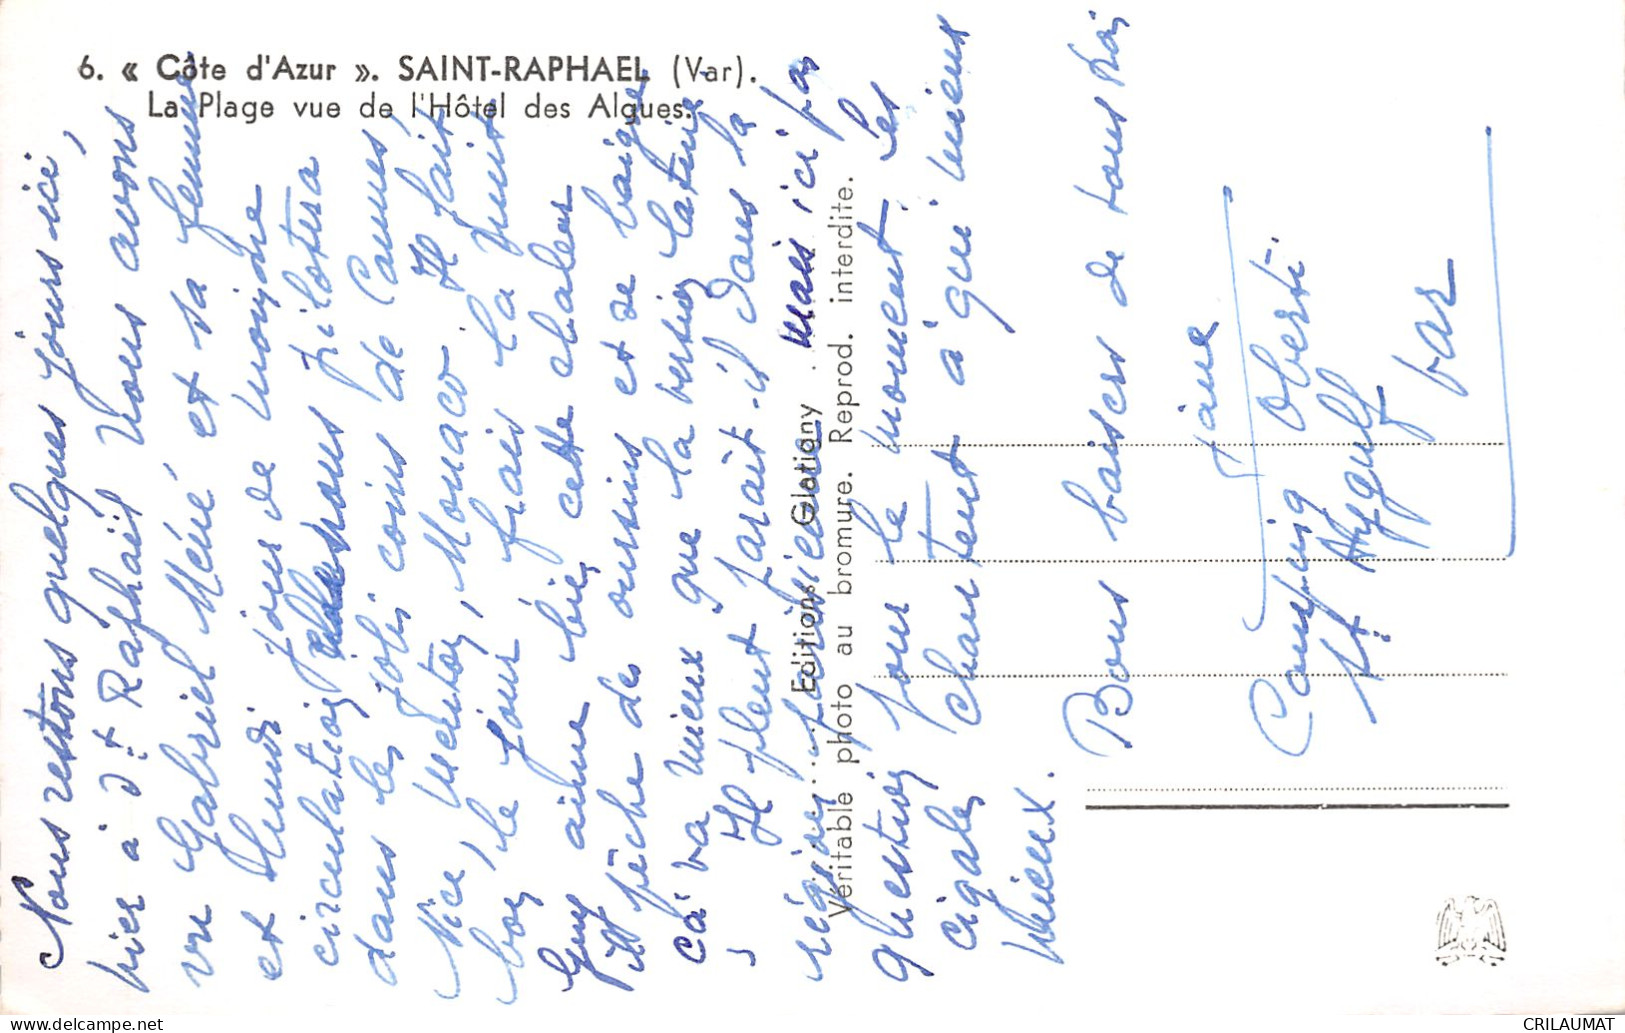 6. « Côte d'Azur ». SAINT-RAPHAEL (Var).
La Plage vue de l'Hôtel des Algues.
Nous restons quelques jours ici,
hier à St Raphaël nous avons
vu Gabriel Mené et sa femme
et lundi jour de moindre
circulation nous pilotera
dans les jolis coins de Cannes,
Nice, Menton, Monaco. Il fait
bon, le jour, frais la nuit
Guy aime bien cette chaleur
pêche des oursins et se baigne
ça va mieux que la version latine
Il pleut paraît-il dans la
région parisienne mais ici pas
question pour le moment. Les
cigales chantent à qui mieux
mieux.
Bons baisers de tous trois
Jane
Camping Oberti
St Aygulf
Var
Editions Glatigny
Véritable photo au bromure. Reprod. interdite.
CRILAUMAT